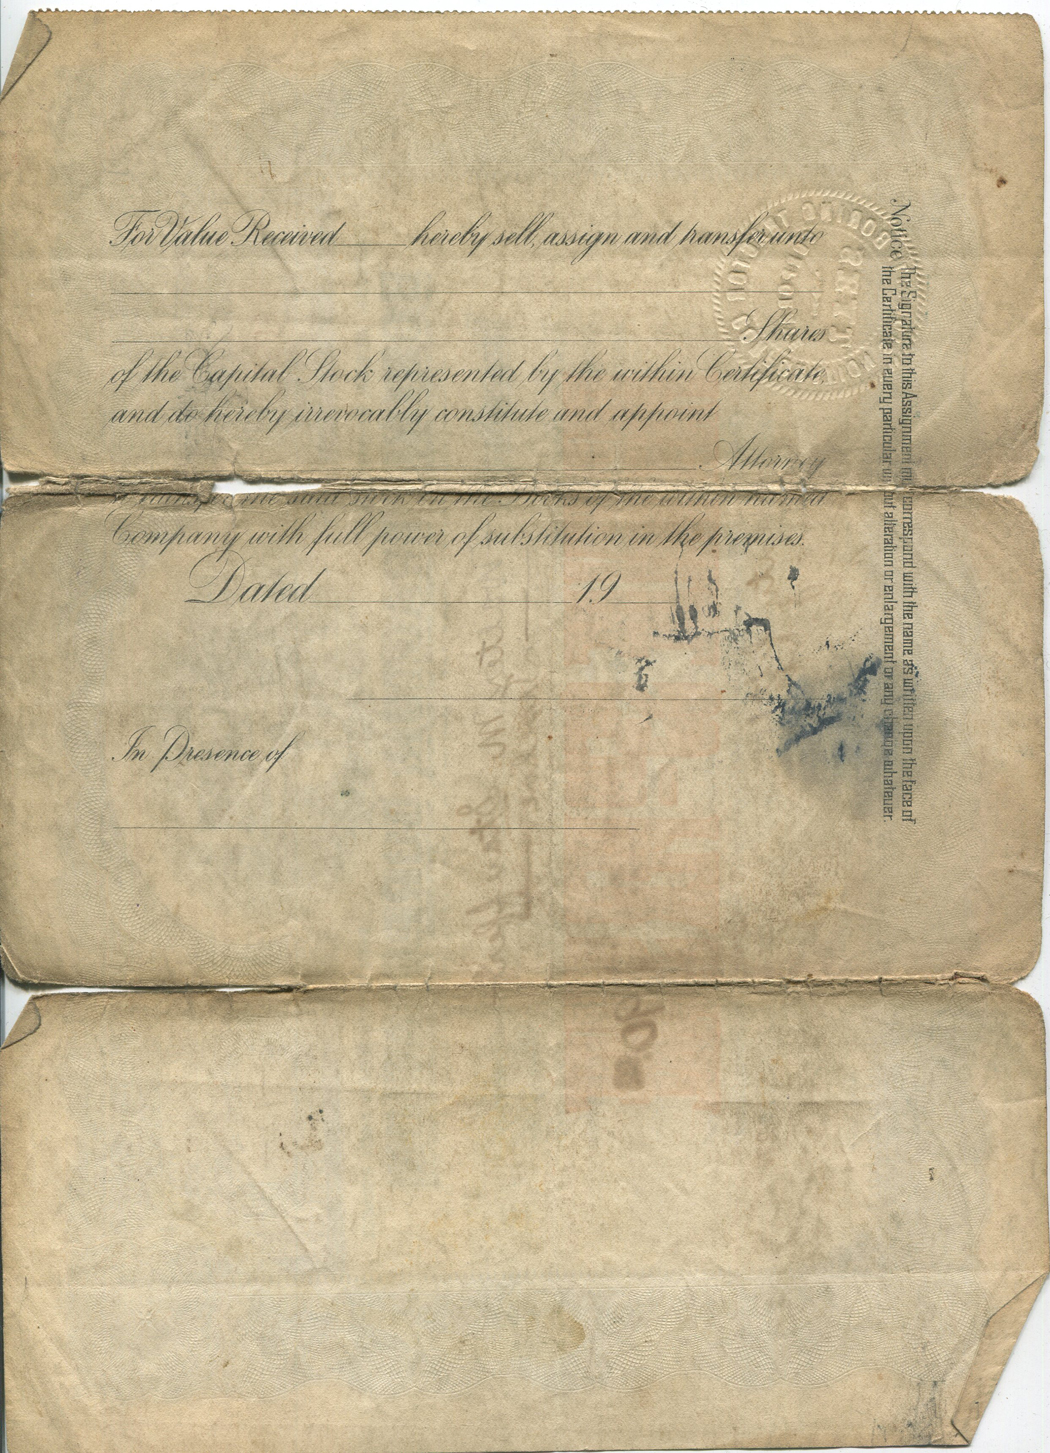 For Value Received hereby sell, assign and transfer unto
Shares
of the Capital Stock represented by the within Certificate,
and do hereby irrevocably constitute and appoint
Attorney
to transfer the said stock on the Books of the within named
Company with full power of substitution in the premises.
Dated 19
In Presence of
Notice. The Signature to this Assignment must correspond with the name as written upon the face of
the Certificate in every particular without alteration or enlargement or any change whatever.
BORING
SEAL